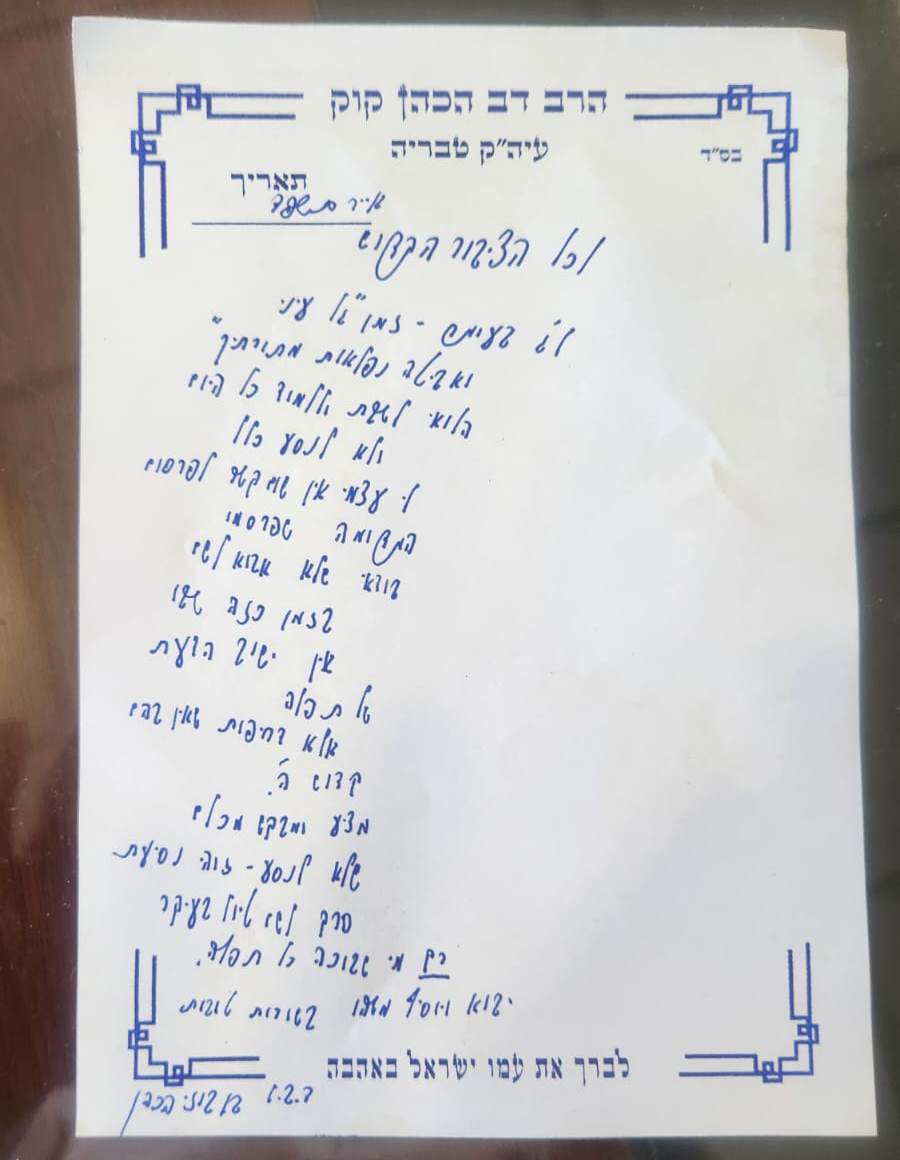 הרב דב הכהן קוק
עיה"ק טבריה
בס"ד
תאריך
אייר תשפד
לכל הציבור הקדוש
לג בעומר - זמן "גל עיני
ואביטה נפלאות מתורתך"
הלואי לשבת וללמוד כל היום
ולא לנסע כלל
לי עצמי אין שום קשר לפרסום
המדומה שפרסמו
בודאי שלא אבוא לשם
בזמן כזה שבו
אין ישוב הדעת
של תפלה
אלא דחיפות שאין בהם
קדוש ה'.
מציע ומבקש מכולם
שלא לנסע - זוהי נסיעת
סרק לשם טיול בעיקר
רק מי שבוכה כל תפלה.
יבוא ויוסיף משהו בשורות טובות
לברך את עמו ישראל באהבה
הכהן